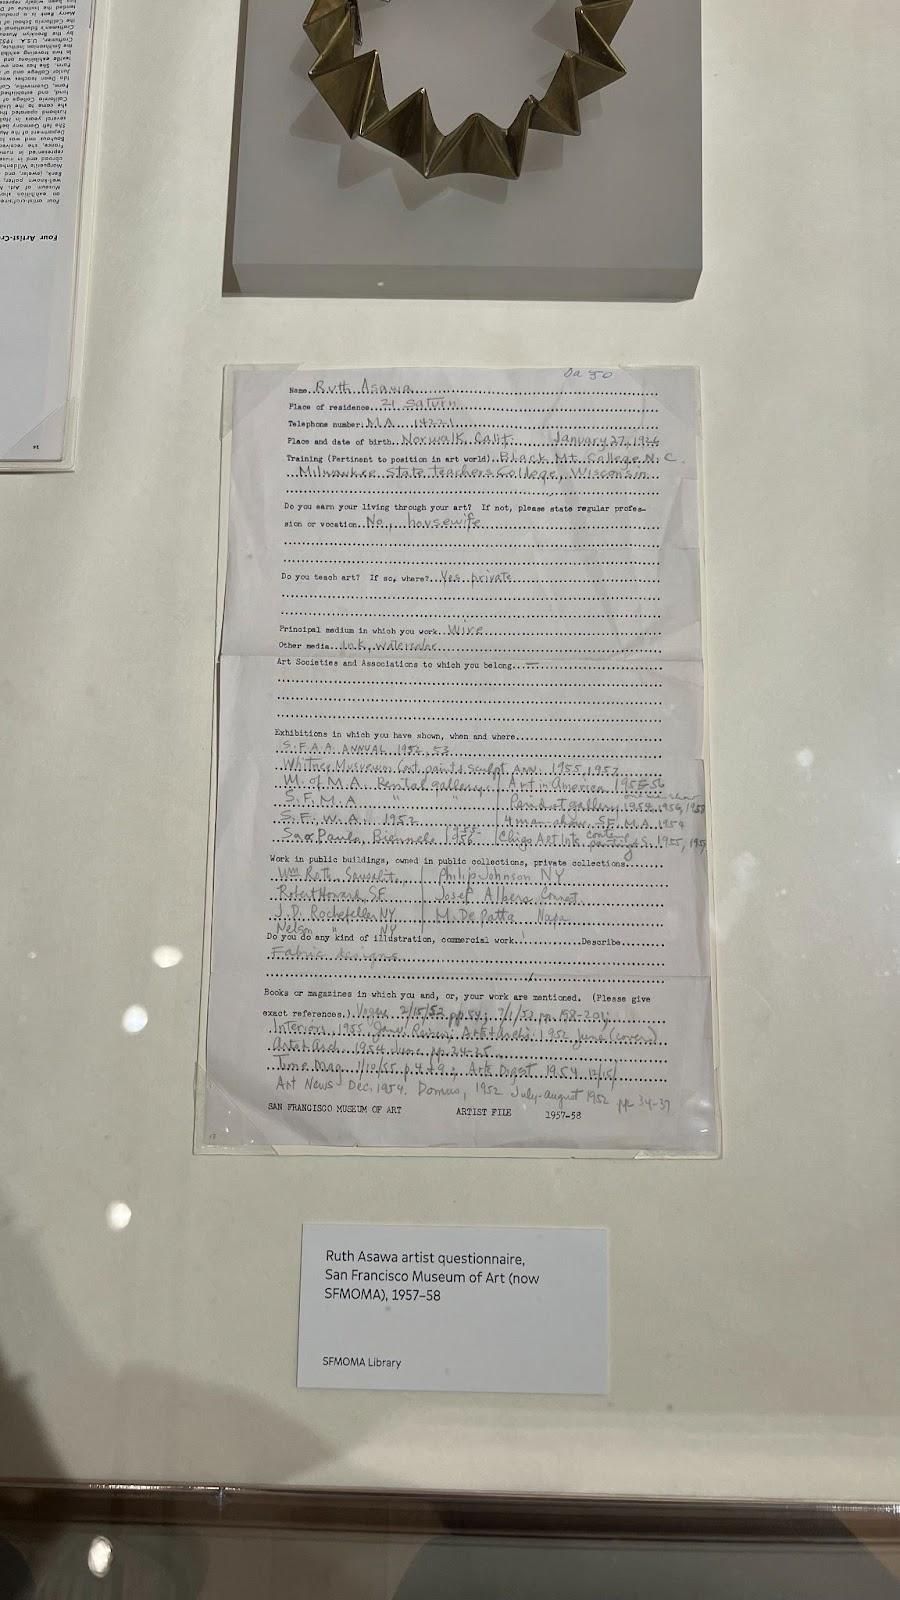 Four Artist-Cr
Da 50
Name Ruth Asawa
Place of residence 21 Saturn
Telephone number MA 14221
Place and date of birth Norwalk, Calif. January 27, 1926
Training (Pertinent to position in art world) Black Mt. College N.C.
Milwaukee State Teachers College, Wisconsin
Do you earn your living through your art? If not, please state regular profes-
sion or vocation No, housewife
Do you teach art? If so, where? Yes private
Principal medium in which you work Wire
Other media Ink, watercolor
Art Societies and Associations to which you belong —
Exhibitions in which you have shown, when and where
S.F.A.A. ANNUAL 1952, 53
Whitney Museum Cont. paint & sculpt. Ann. 1955, 1957
M. of M.A. Rental gallery Art in America 1955-56
S.F.M.A. " " Peridot gallery 1954, 1956, 1958
S.F.W.A. 1952 4 man show, SF.M.A. 1954
Sao Paulo, Biennale 1955-1956 Chigo Art Inst. 1955,
Work in public buildings, owned in public collections, private collections
Wm Roth, Sausalito Philip Johnson NY
Robert Howard, SF Josef Albers Connet.
J.D. Rochefeller NY M. De Patta Napa
Nelson " NY
Do you do any kind of illustration, commercial work Describe
Fabric designs
Books or magazines in which you and, or, your work are mentioned. (Please give
exact references.) Vogue 2/15/53 pp.
Interiors 1955 Arts & Archi. 1952 June (cover)
Arts & Arch. 1954 June, pp. 24-25
Time Mag. 1/10/55 Arts Digest 1954 12/15/
Art News Dec. 1954. Domus, 1952 July-august 1952 pp 34-37
SAN FRANCISCO MUSEUM OF ART ARTIST FILE 1957-58
Ruth Asawa artist questionnaire,
San Francisco Museum of Art (now
SFMOMA), 1957–58
SFMOMA Library